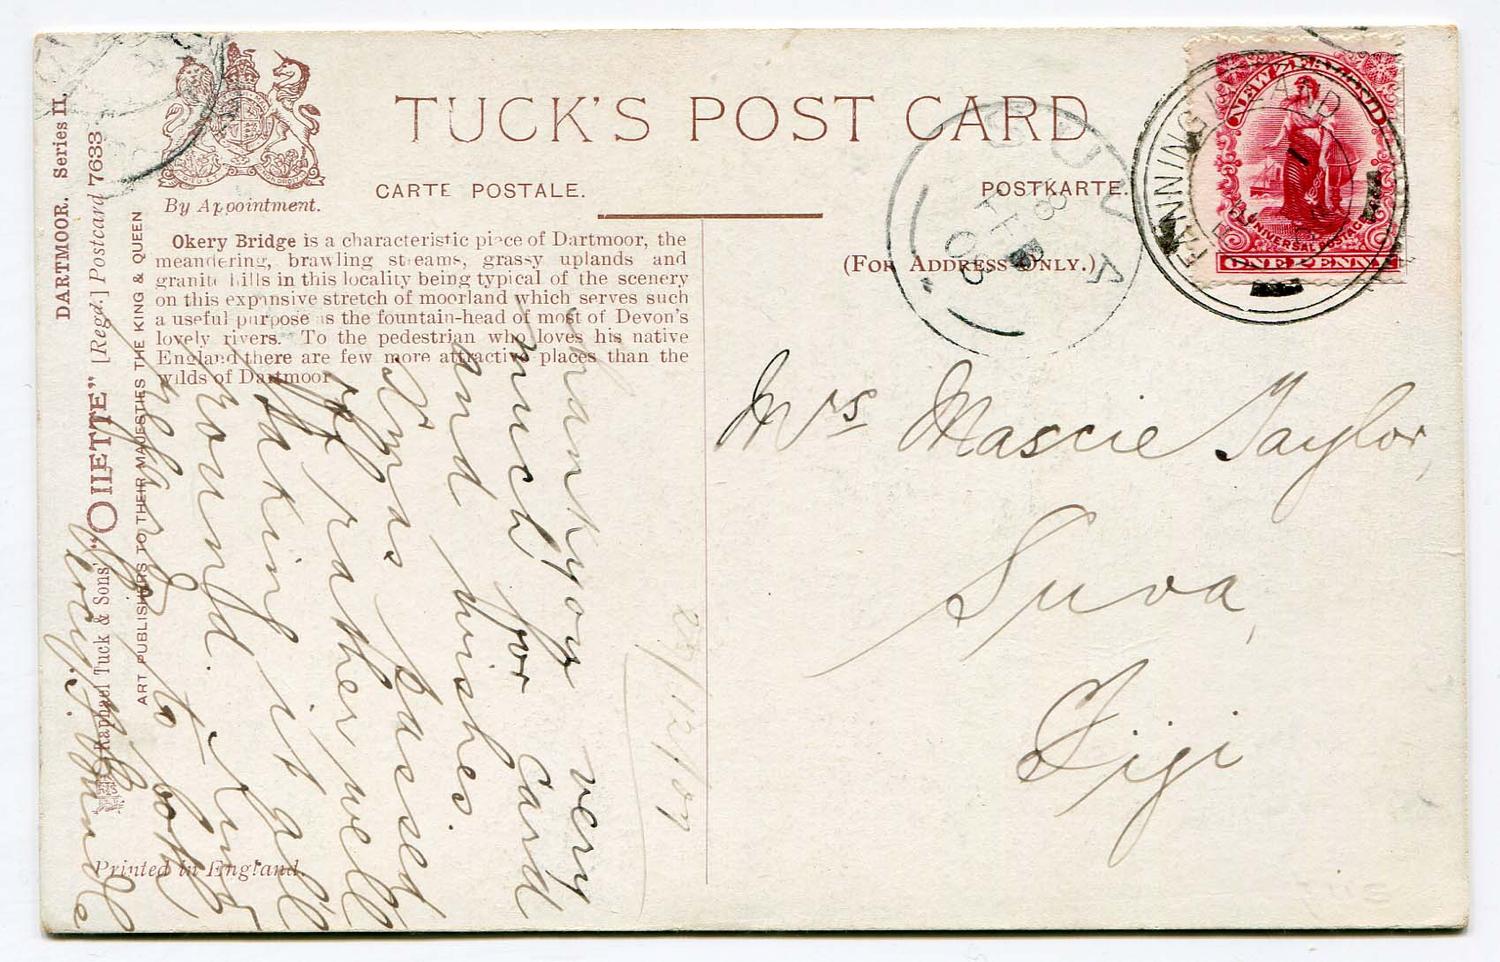 TUCK'S POST CARD
CARTE POSTALE.
POSTKARTE.
By Appointment.
(FOR ADDRESS ONLY.)
Okery Bridge is a characteristic piece of Dartmoor, the
meandering, brawling streams, grassy uplands and
granite hills in this locality being typical of the scenery
on this expansive stretch of moorland which serves such
a useful purpose as the fountain-head of most of Devon's
lovely rivers. To the pedestrian who loves his native
England there are few more attractive places than the
wilds of Dartmoor
DARTMOOR. Series II.
Raphael Tuck & Sons' "OILETTE" [Regd.] Postcard 7633
ART PUBLISHERS TO THEIR MAJESTIES THE KING & QUEEN
Printed in England.
NEW ZEALAND
UNIVERSAL POSTAGE
ONE PENNY
FANNING ISLAND
SUVA
8
FEB
08
Mrs Mascie Taylor,
Suva,
Fiji
23/12/07
Thank you very
much for card
and wishes.
Xmas passed
off rather well
taking it all
round. Kind
regards to both